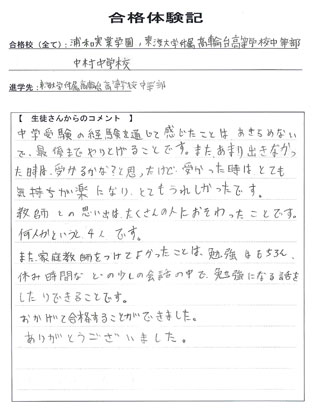 合格体験記
合格校（全て）：浦和実業学園，東海大学付属高輪台高等学校中等部
中村中学校
進学先：東海大学付属高輪台高等学校中等部
【 生徒さんからのコメント 】
中学受験の経験を通して感じたことは、あきらめない
で、最後までやりとげることです。また、あまり出きなかっ
た時は、受かるかな？と思ったけど、受かった時はとても
気持ちが楽になり、とてもうれしかったです。
教師との思い出は、たくさんの人におそわったことです。
何人かというと、4人です。
また、家庭教師をつけてよかったことは、勉強はもちろん、
休み時間などの少しの会話の中で、勉強になる話を
したりできることです。
おかげで合格することができました。
ありがとうございました。